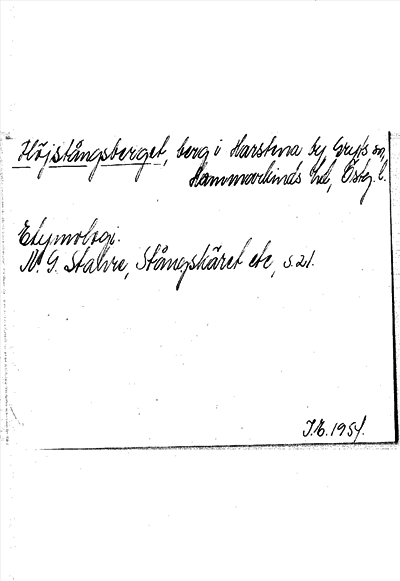 Höjstångsberget, berg i Harstena by Gryts sn,
Hammarkinds hd, Östg. l.
Etymologi.
N. G. Stahre, Stångskäret etc, s. 21.
J.E. 1954.